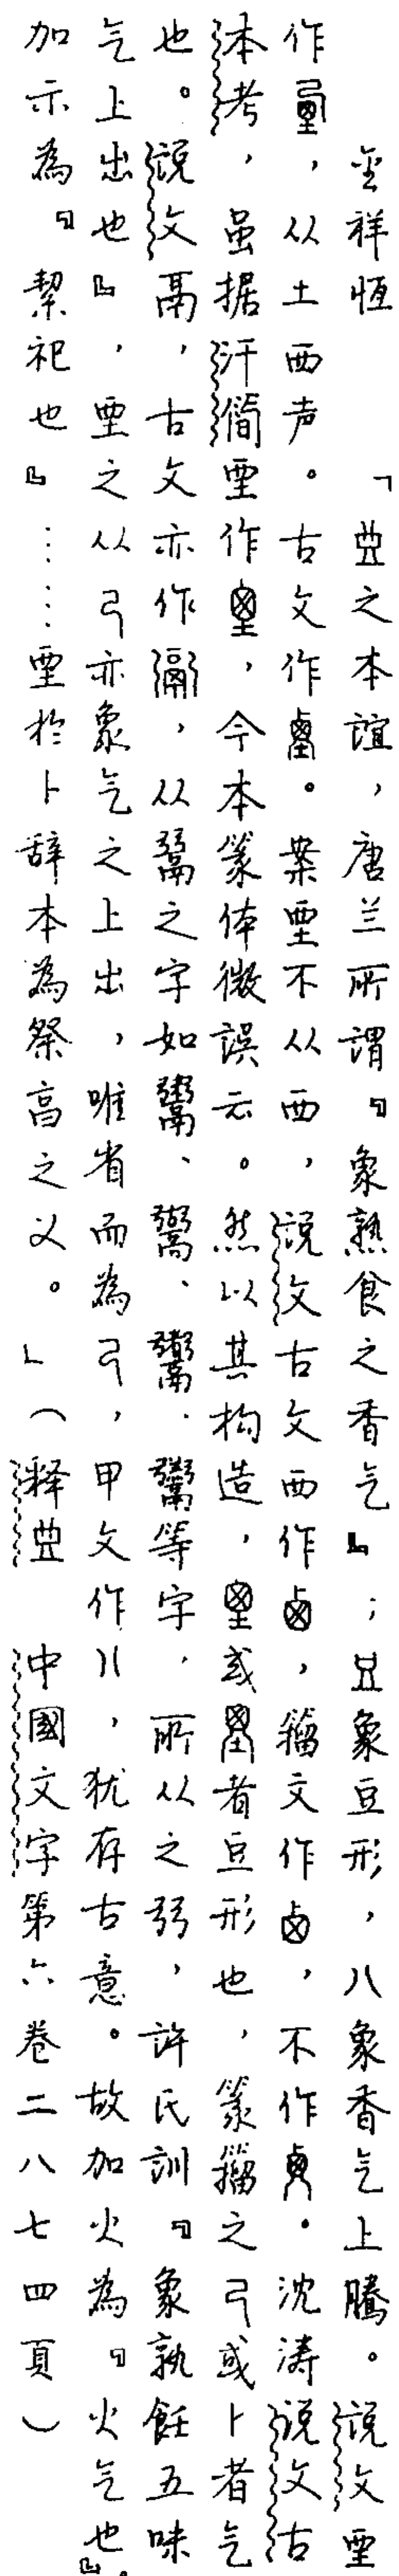 金祥恆 「𤰇之本誼，唐兰所謂『象熟食之香气』；豆象豆形，八象香气上騰。说文垔
作，从土西声。古文作。案垔不从西，说文古文西作卤，籀文作卤，不作。沈涛说文古
本考，虽据汗簡垔作，今本篆体微誤云。然以其构造，或者豆形也，篆籀之弓或卜者气
也。说文鬲，古文亦作，从䰜之字如鬻、、、等字，所从之弜，許氏訓『象孰飪五味
气上出也』，垔之从弓亦象气之上出，唯省而為弓，甲文作八，犹存古意。故加火為『火气也』。
加示為『䄄祀也』……垔於卜辞本為祭亯之义。」（释 中國文字第六卷二八七四頁）